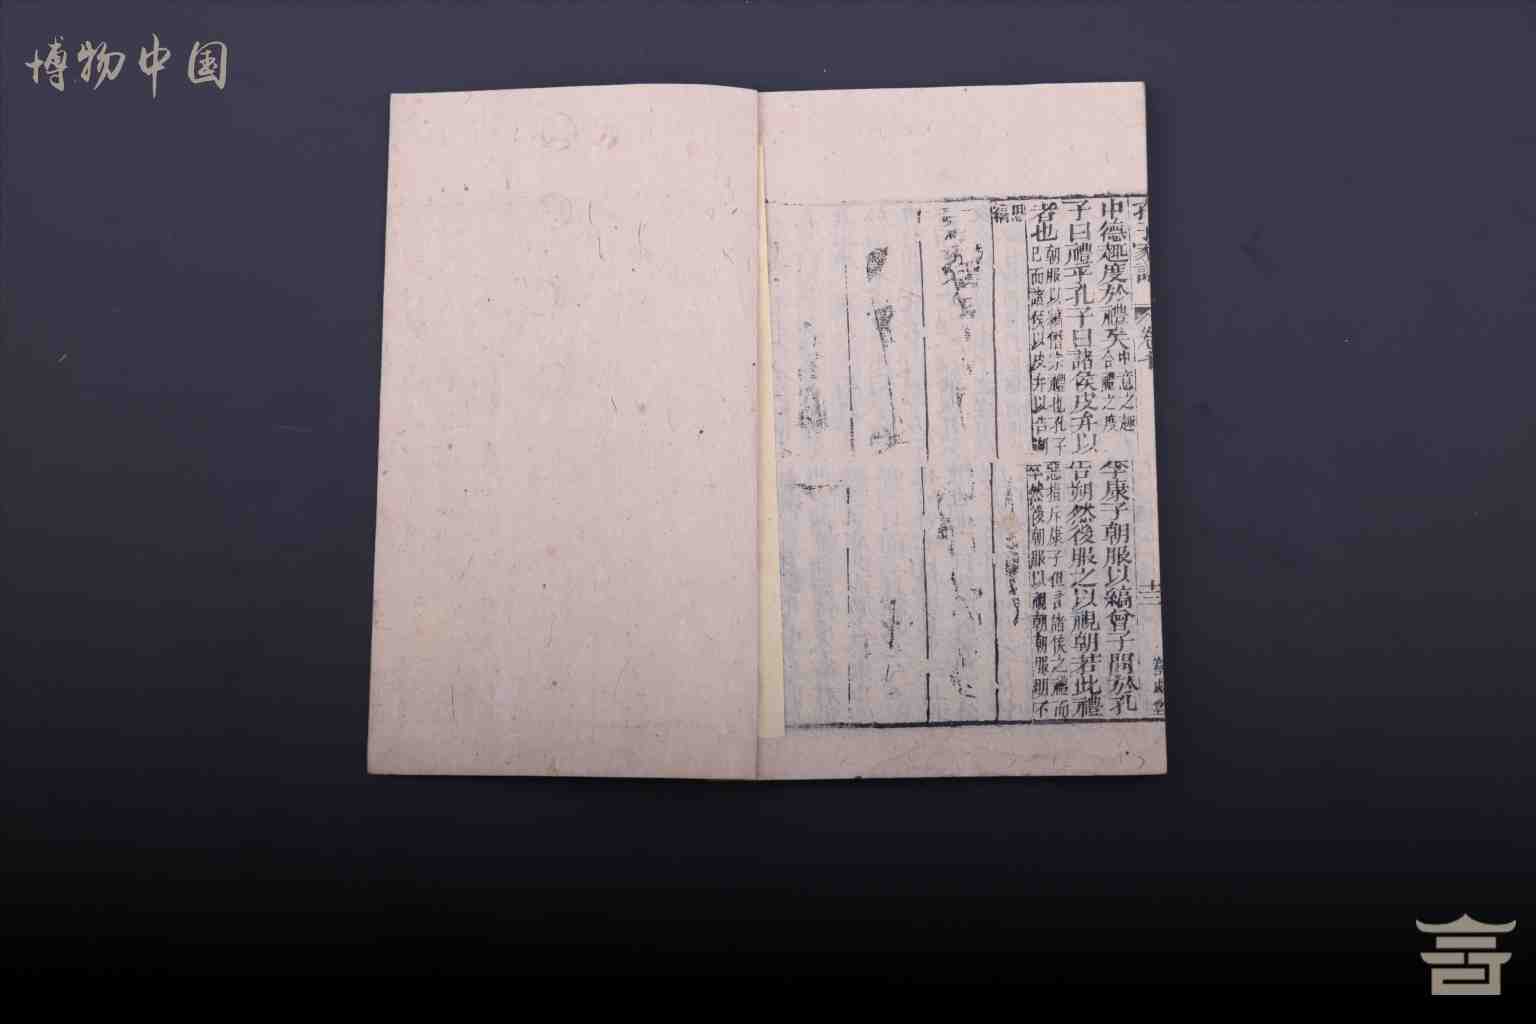 博物中国
孔子家語 卷十 十三
中德趣度於禮矣 中意之趣 合禮之度 季康子朝服以縞曾子問於孔
子曰禮乎孔子曰諸侯皮弁以告朔然後服之以視朝若此禮
者也 朝服以縞僭宋禮也孔子惡指斥康子但言諸侯之禮而
已而諸侯以皮弁以告朔卒然後朝服以視朝朝服明不
縞